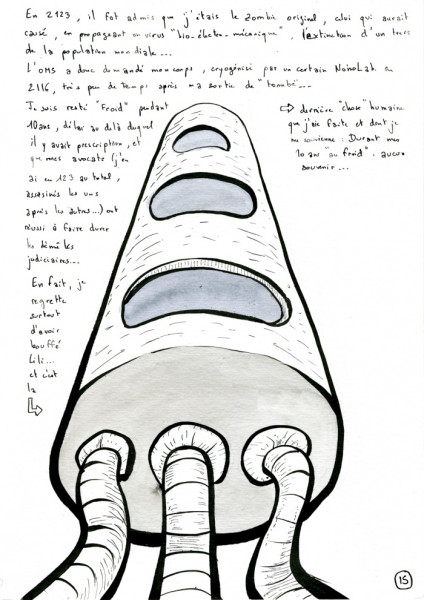 En 2123, il fut admis que j'étais le Zombie original, celui qui aurait
causé, en propageant un virus "bio-électro-mécanique", l'extinction d'un tiers
de la population mondiale...
L'OMS a donc demandé mon corps, cryogénisé par un certain NanoLab en
2116, très peu de temps après ma sortie de "tombe"...
Je suis resté "Froid" pendant
10 ans, délai au delà duquel
il y avait prescription, et
que mes avocats (j'en
ai en 123 au total,
assassinés les uns
après les autres...) ont
réussi à faire durer
les démêlés
judiciaires...
En fait, je
regrette
surtout
d'avoir
bouffé
Lili...
et c'est
la
⇨ dernière "chose" humaine
que j'aie faite et dont je
me souvienne : Durant mes
10 ans "au froid", aucun
souvenir...
15